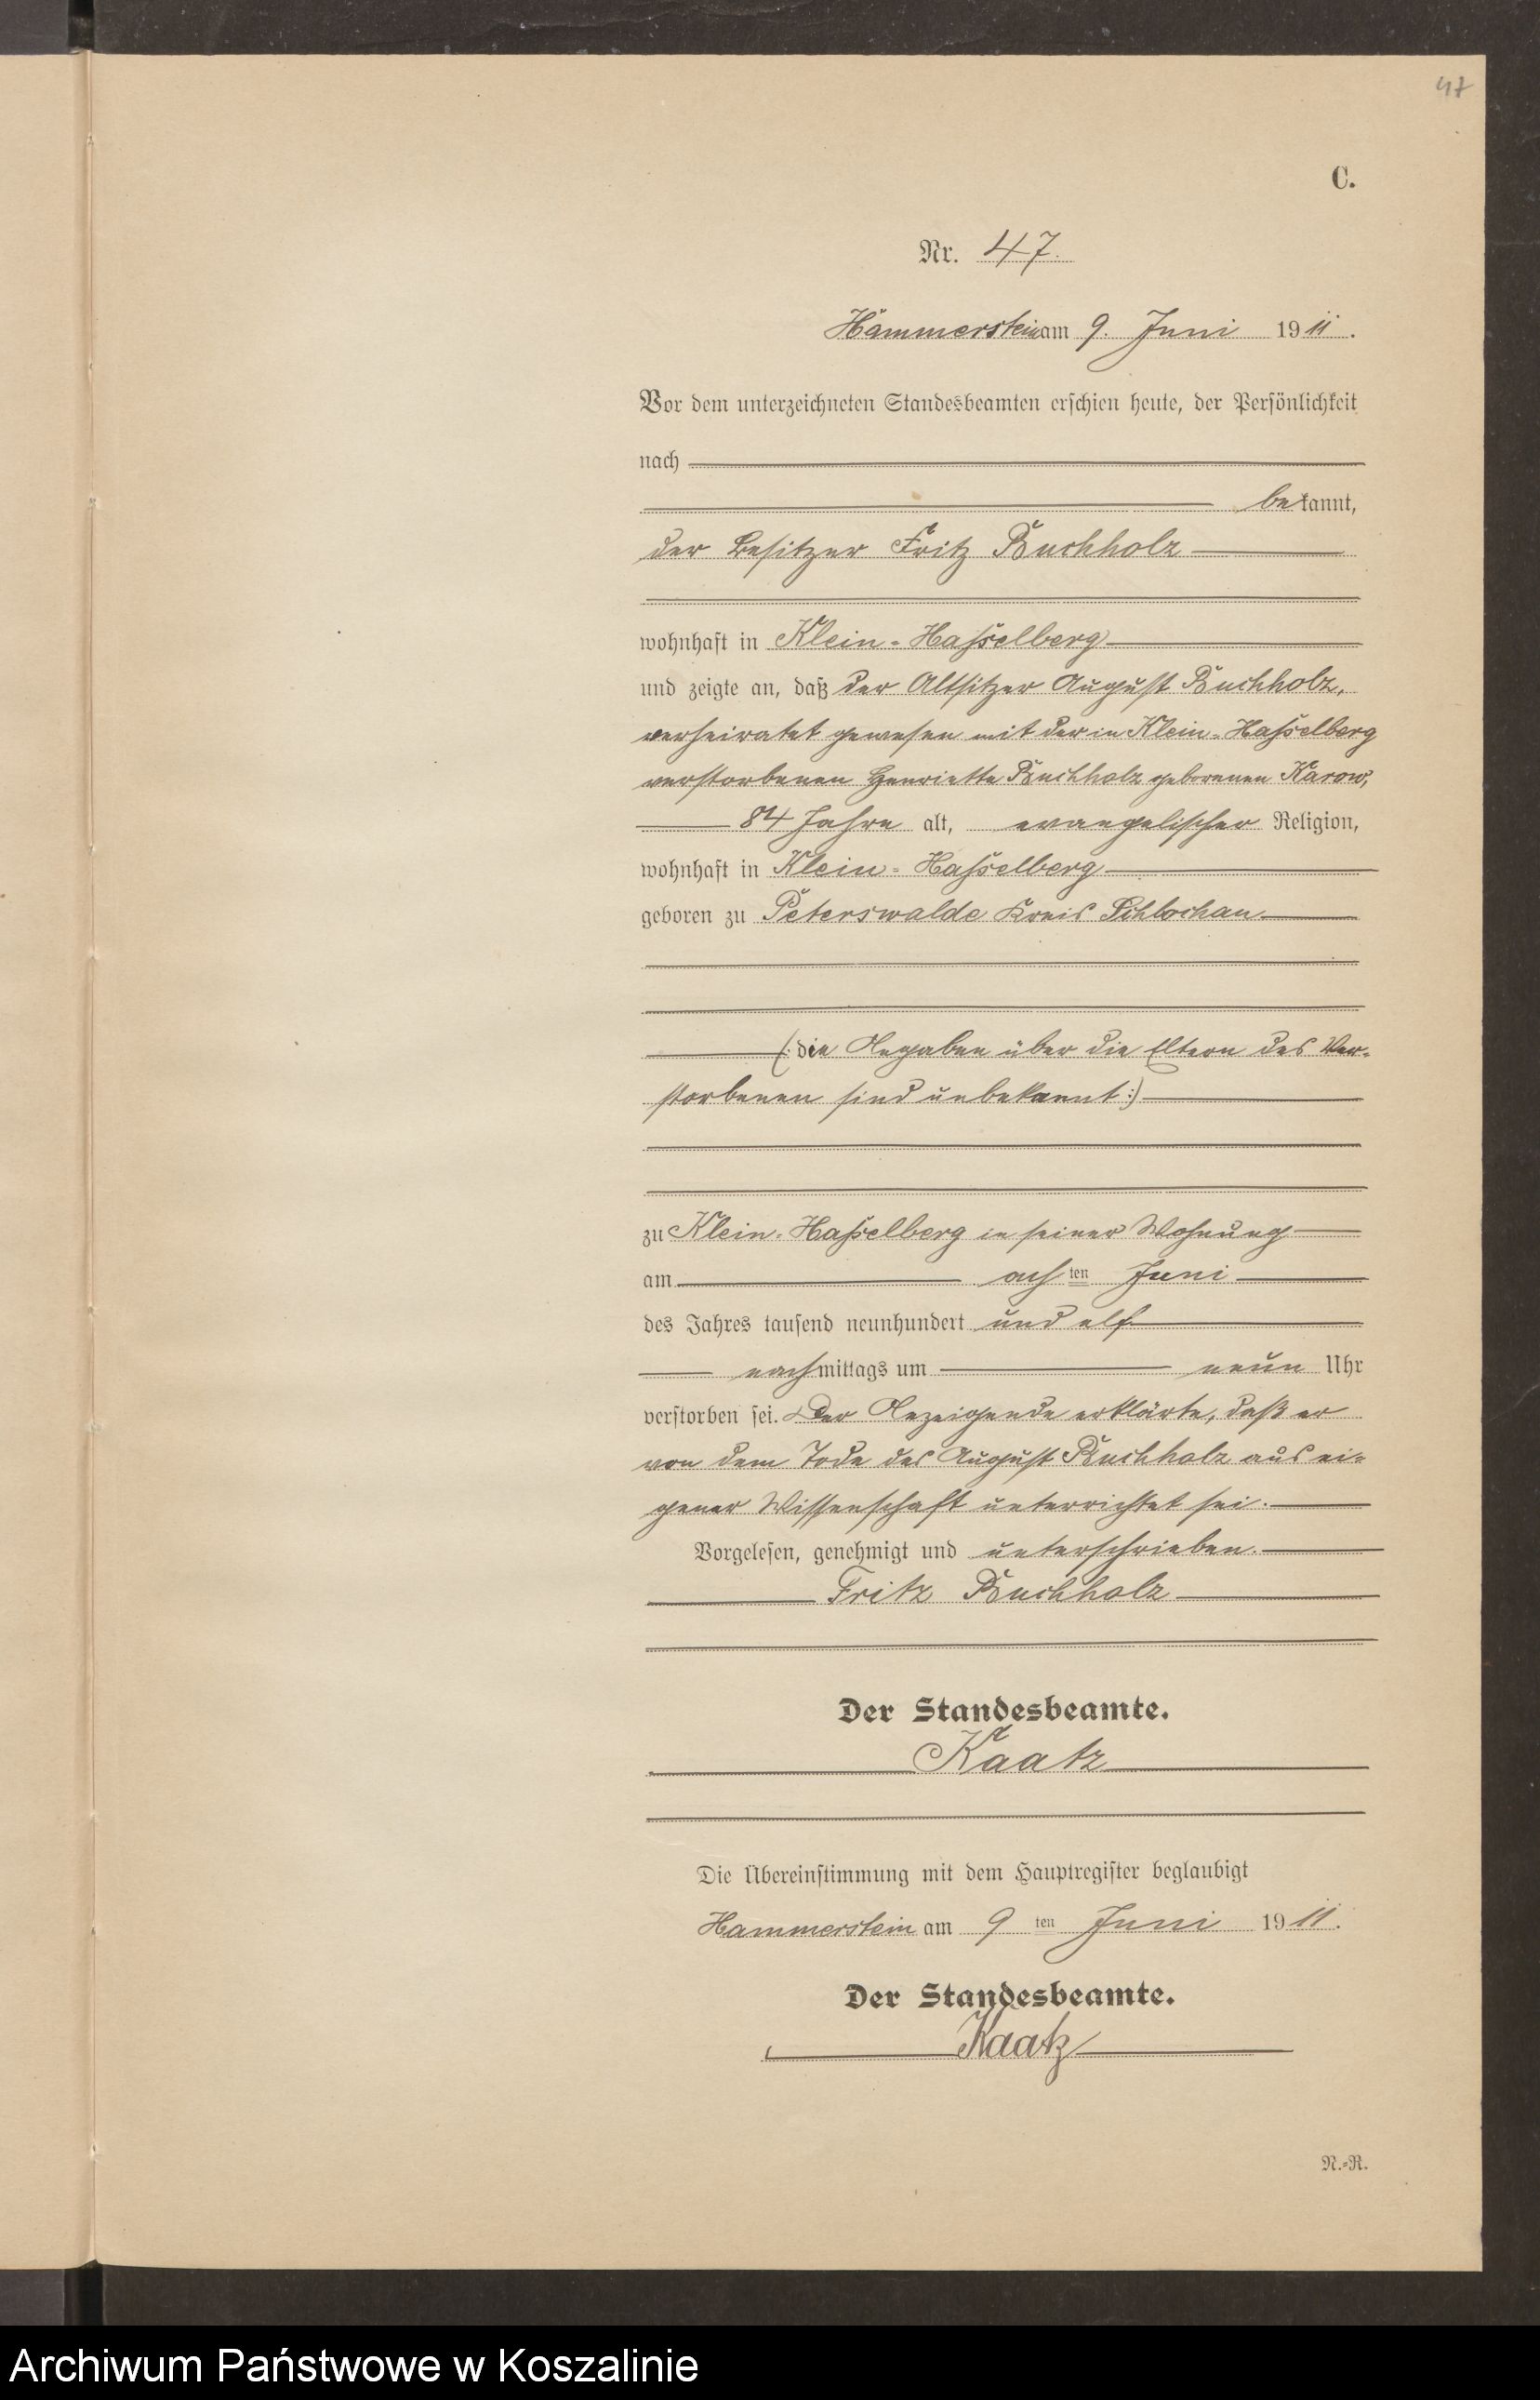 47
C.
Nr. 47.
Hammerstein am 9. Juni 1911.
Vor dem unterzeichneten Standesbeamten erschien heute, der Persönlichkeit
nach
bekannt,
der Besitzer Fritz Buchholz
wohnhaft in Klein-Hasselberg
und zeigte an, daß der Altsitzer August Buchholz,
verheiratet gewesen mit der in Klein-Hasselberg
verstorbenen Henriette Buchholz geborenen Karow,
84 Jahre alt, evangelischer Religion,
wohnhaft in Klein-Hasselberg
geboren zu Peterswalde Kreis Schlochau
(: die Angaben über die Eltern des Ver-
storbenen sind unbekannt :)
zu Klein-Hasselberg in seiner Wohnung
am achten Juni
des Jahres tausend neunhundert und elf
nachmittags um neun Uhr
verstorben sei. Der Anzeigende erklärte, daß er
von dem Tode des August Buchholz aus ei-
gener Wissenschaft unterrichtet sei.
Vorgelesen, genehmigt und unterschrieben.
Fritz Buchholz
Der Standesbeamte.
Kaatz
Die Übereinstimmung mit dem Hauptregister beglaubigt
Hammerstein am 9ten Juni 1911.
Der Standesbeamte.
Kaatz
N.-R.
Archiwum Państwowe w Koszalinie